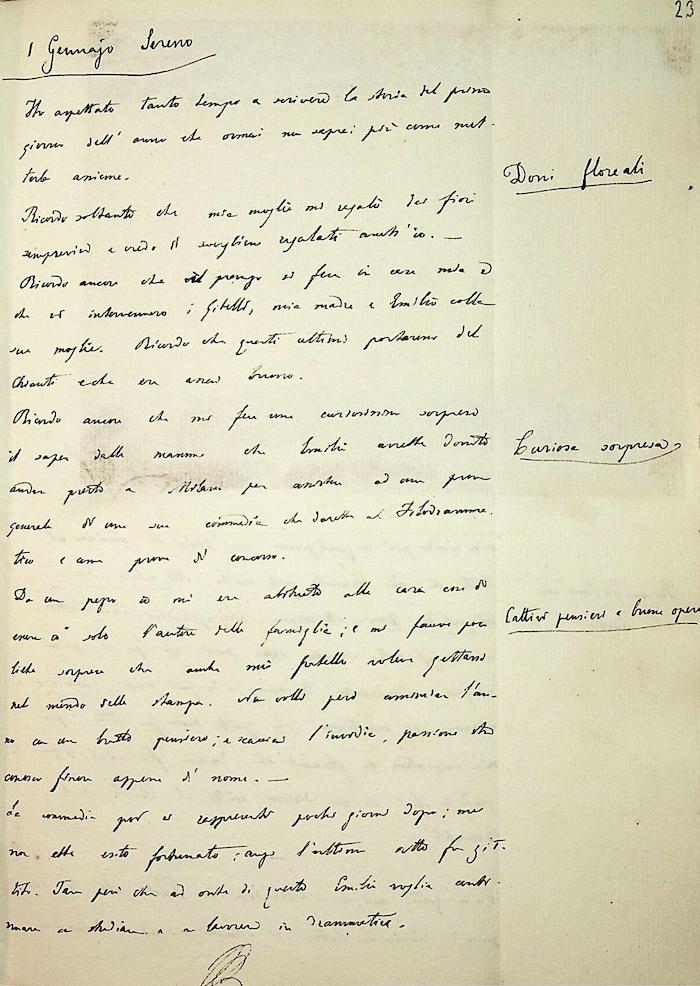 23
1 Gennajo Sereno
Ho aspettato tanto tempo a scrivere la storia del primo
giorno dell' anno che ormai non saprei più come met-
terla assieme.
Doni floreali
Ricordo soltanto che mia moglie mi regalò dei fiori
semprevivi e credo di avergliene regalati anch'io. —
Ricordo ancora che il pranzo si fece in casa mia e
che vi intervennero i Gitelli, mia madre e Emilio colla
sua moglie. Ricordo che questi ultimi portarono del
Chianti e che era assai buono.
Ricordo ancora che mi fece una curiosissima sorpresa
il saper dalla mamma che Emilio avrebbe dovuto
Curiosa sorpresa
andar presto a Milano per assistere ad una prova
generale di una sua commedia che darebbe al Filodramma-
tico e come prova di concorso.
Da un pezzo io mi era abituato alla cara cosa di
essere io solo l'autore della famiglia; e mi faceva pou
Cattivi pensieri e buone opere
biche sorpresa che anche mio fratello volesse gettarsi
nel mondo della stampa. Non volli però cominciar l'an-
no con un brutto pensiero; e scacciai l'invidia, passione che
conosco finora appena di nome. —
La commedia poi si rappresentò pochi giorni dopo; ma
non ebbe esito fortunato; anzi l'ultimo atto fu zit-
tito. Pare però che ad onta di questo Emilio voglia conti-
nuare a studiare e a lavorare in drammatica.